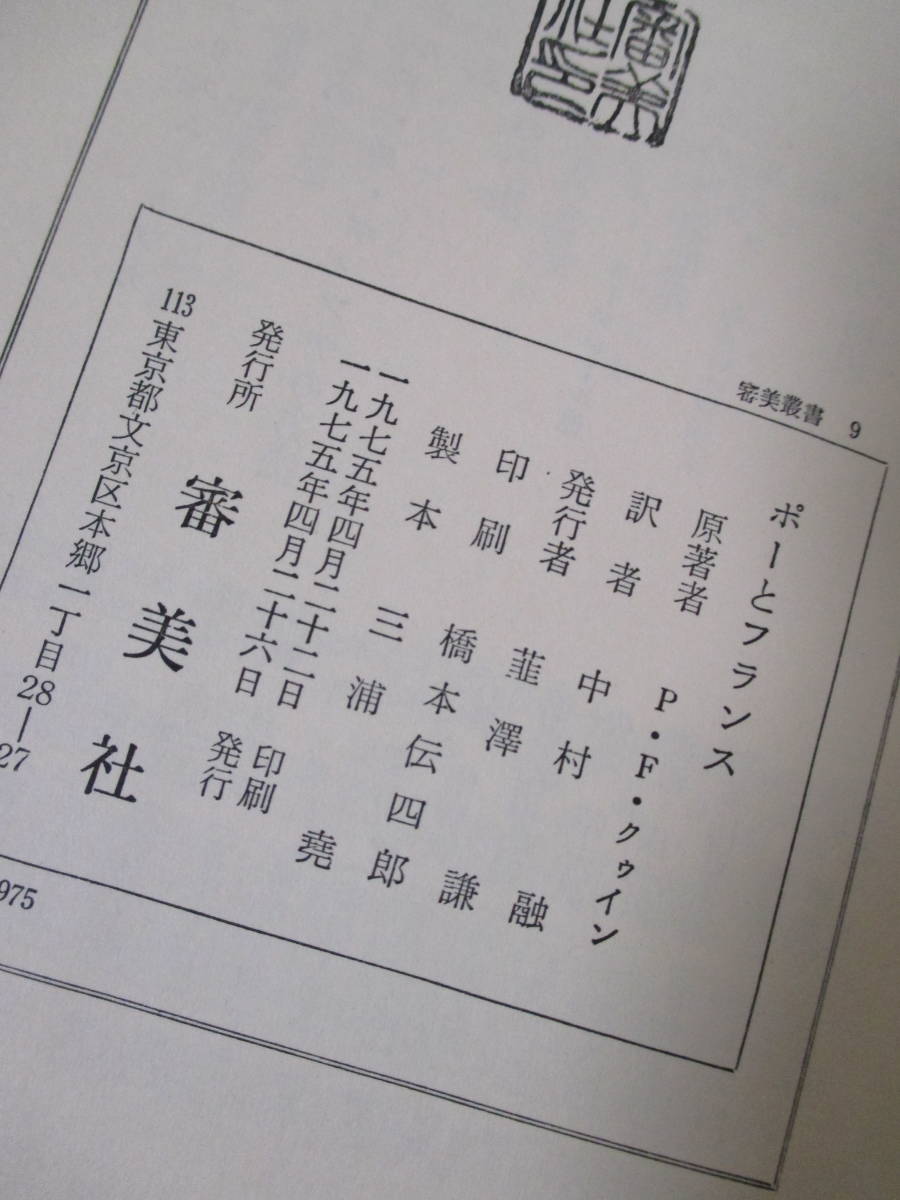 審美社印
審美叢書 9
ポーとフランス
原著者 P・F・クゥイン
訳者 中村融
発行者 韮澤謙
印刷 橋本伝四郎
製本 三浦堯
一九七五年四月二十二日 印刷
一九七五年四月二十六日 発行
発行所 審美社
113 東京都文京区本郷一丁目28-27
975